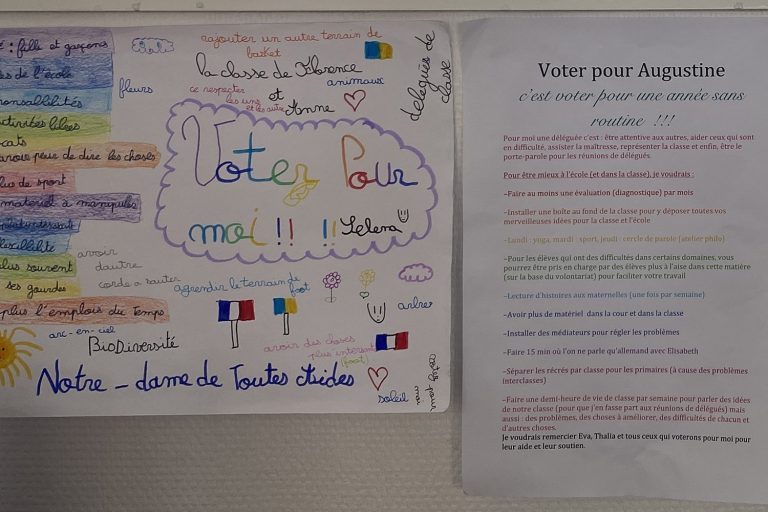 : fille et garçons
ajouter un autre terrain de
basket
la classe de Florence
animaux
et
Anne
ce respectes
les uns
et les autre
fleurs
délégués de
classe
de l'école
responsabilités
activités libres
avoir plus de dire les choses
plus de sport
materiel à manipules
plus souvent
ses gourdes
plus l'emplois du temps
Voter Pour
moi !! !! Selena
avoir
d'autre
corde a sauter
agrendir le terrain de
foot
arbres
arc-en-ciel
BioDiversité
avoir des choses
plus interessant
(foot)
Notre-dame de Toutes Aides
soleil
voter pour
moi
Voter pour Augustine
c'est voter pour une année sans
routine !!!
Pour moi une déléguée c'est : être attentive aux autres, aider ceux qui sont
en difficulté, assister la maîtresse, représenter la classe et enfin, être le
porte-parole pour les réunions de délégués.
Pour être mieux à l'école (et dans la classe), je voudrais :
-Faire au moins une évaluation (diagnostique) par mois
-Installer une boîte au fond de la classe pour y déposer toutes vos
merveilleuses idées pour la classe et l'école
-Lundi : yoga, mardi : sport, jeudi : cercle de parole (atelier philo)
-Pour les élèves qui ont des difficultés dans certains domaines, vous
pourrez être pris en charge par des élèves plus à l'aise dans cette matière
(sur la base du volontariat) pour faciliter votre travail
-Lecture d'histoires aux maternelles (une fois par semaine)
-Avoir plus de matériel dans la cour et dans la classe
-Installer des médiateurs pour régler les problèmes
-Faire 15 min où l'on ne parle qu'allemand avec Elisabeth
-Séparer les récrés par classe pour les primaires (à cause des problèmes
interclasses)
-Faire une demi-heure de vie de classe par semaine pour parler des idées
de notre classe (pour que j'en fasse part aux réunions de délégués) mais
aussi : des problèmes, des choses à améliorer, des difficultés de chacun et
d'autres choses.
Je voudrais remercier Eva, Thalia et tous ceux qui voterons pour moi pour
leur aide et leur soutien.